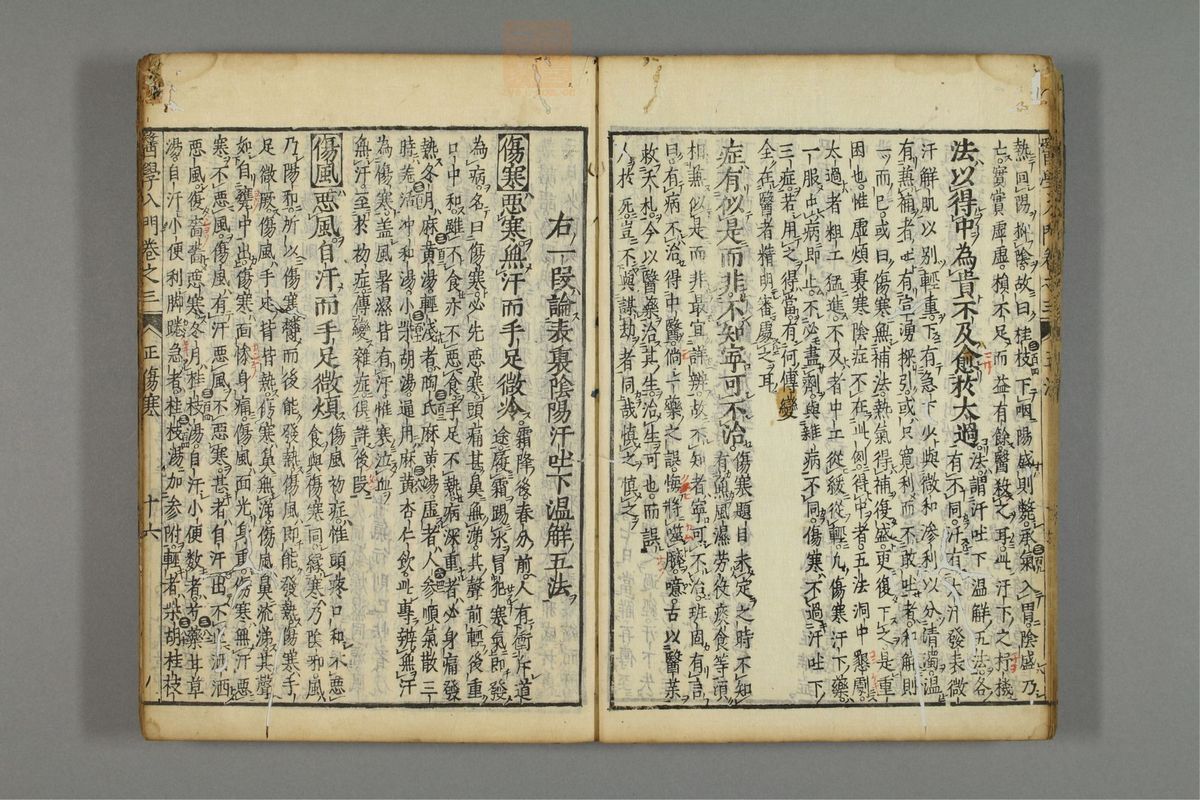 熱回陽抑陰故曰桂枝下咽陽盛則斃承氣入胃陰盛乃
亡實實虛虛損不足而益有餘醫殺之耳此汗下之樞機
法以得中為貴不及愈於太過
法謂汗吐下溫解五法各
有不同汗有大汗發表微
汗解肌以別輕重下有急下少與微和滲利以分清濁溫
有兼補者吐有宣湧探引或只寬利而不敢吐者和解則
一而已或曰傷寒無補法熱氣得補復盛更復下之是重
困也惟虛煩裏寒陰症不在此例得中者五法洞中懇
太過者粗工猛進不及者中工從緩從輕凡傷寒汗下藥
一服中病即止不必盡劑與雜病不同傷寒不過汗吐下
三症若用之得當有何傳變
全在醫者精明審處之耳
症有似是而非不知寧可不治
傷寒題目未定之時不知
有無風濕勞役痰食等項
相兼似是而非最宜詳辨故不知者寧可不治班固有言
曰有病不治得中醫倘一藥之誤悔將噬臍噫古以醫業
救夭札今以醫藥治其生治生可也而誤
人於死豈不與謀劫者同哉慎之慎之
右一段論表裏陰陽汗吐下溫解五法
傷寒惡寒無汗而手足微冷
霜降後春分前人有衝斥道
途履霜踏氷冒犯寒氣即發
為病名曰傷寒必先惡寒頭痛甚鼻無涕其聲前輕後重
口中和雖不食亦不惡食手足不熱病深重者必身痛發
熱冬月麻黃湯輕淺者陶氏麻黃湯虛者人參順氣散三
時羌活沖和湯小柴胡湯通用麻黃杏仁飲此專辨無汗
為傷寒盖風暑濕皆有汗惟寒泣血
無汗至於初症傳變雜症俱詳後叚
傷風惡風自汗而手足微煩
傷風初症惟頭疼口和不惡
食與傷寒同緣寒乃陰和風
乃陽犯所以傷寒鬱而後能發熱傷風即能發熱傷寒手
足微厥傷風手足背皆熱傷寒鼻無涕傷風鼻流涕其聲
如自甕中出傷寒面慘身痛傷風面光身重傷寒無汗惡
寒不惡風傷風有汗惡風不惡寒甚者自汗出不止洒洒
惡風復嗇嗇惡寒冬月桂枝湯自汗小便數者芍藥甘草
湯自汗小便利脚踡急者桂枝湯加參附輕者柴胡桂枝
醫學入門卷之三
正傷寒
十六